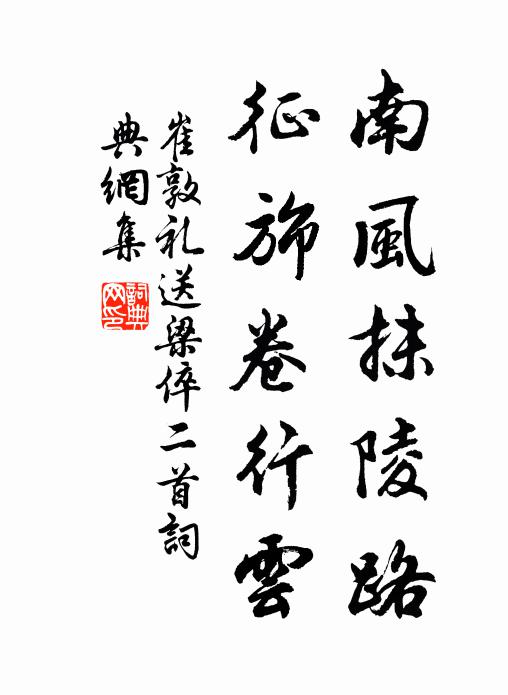 南風秣陵路
征旆卷行雲
崔敦礼送梁倅二首詞
典網集
詞典网印